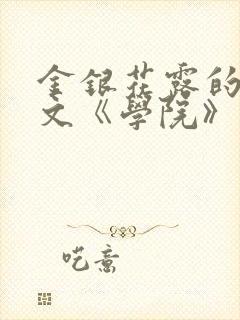 金銀花露的
文《學院》
呓意